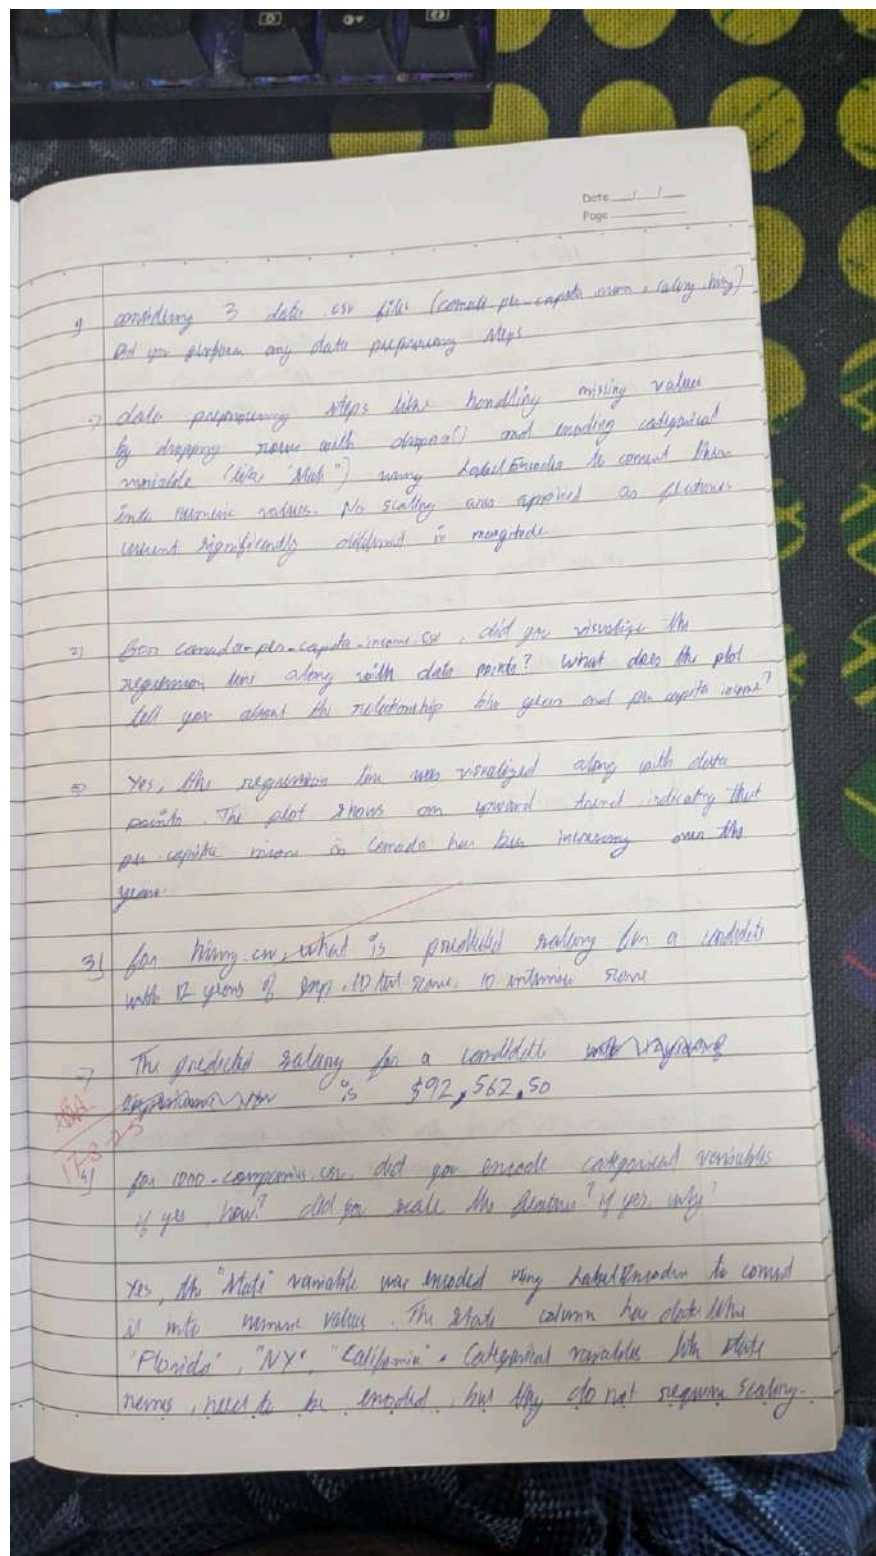 Date __/__/__
Page
1) considering 3 data .csv files (canada-per-capita-income, salary, hiring)
Did you perform any data preprocessing steps
=> data preprocessing steps like handling missing values
by dropping rows with dropna() and encoding categorical
variable (like "State") using LabelEncoder to convert them
into numeric values. No scaling was applied as features
weren't significantly different in magnitude.
2) For canada-per-capita-income.csv, did you visualize the
regression line along with data points? What does the plot
tell you about the relationship btw year and per capita income?
=> Yes, the regression line was visualized along with data
points. The plot shows an upward trend indicating that
per capita income in Canada has been increasing over the
years.
3) for hiring.csv, what is predicted salary for a candidate
with 12 years of exp, 10 test score, 10 interview score
=> The predicted salary for a candidate
is $92,562.50
17-3-25
4) for 1000-companies.csv, did you encode categorical variables
if yes, how? did you scale the features? if yes, why?
Yes, the "State" variable was encoded using LabelEncoder to convert
it into numeric values. The state column has data like
"Florida", "NY", "California". Categorical variables like state
names, need to be encoded, but they do not require scaling.